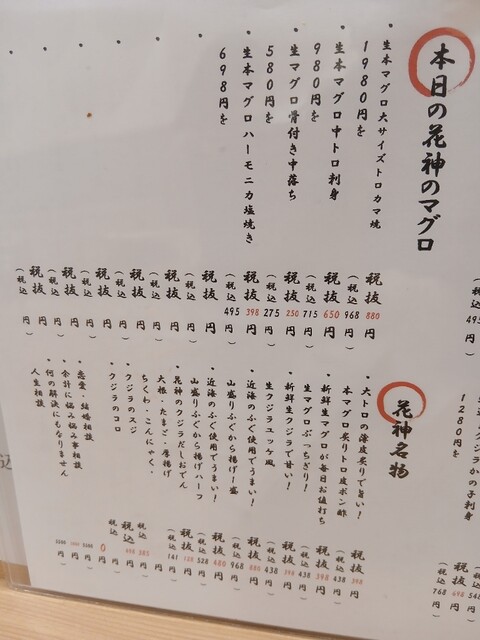 本日の花神のマグロ
・生本マグロ大サイズトロカマ焼
1980円を
税抜 880 円
(税込 968 円)
・生本マグロ中トロ刺身
980円を
税抜 650 円
(税込 715 円)
・生マグロ骨付き中落ち
580円を
税抜 250 円
(税込 275 円)
・生本マグロハーモニカ塩焼き
698円を
税抜 398 円
(税込 495 円)
税抜 円
(税込 円)
税抜 円
(税込 円)
税抜 円
(税込 円)
税抜 円
(税込 円)
税抜 円
(税込 円)
税抜 円
(税込 円)
花神名物
・大トロの薄皮炙りで旨い!
本マグロ炙りトロ皮ポン酢
税抜 398 円
(税込 438 円)
・新鮮生マグロが毎日お値打ち
生マグロぶっちぎり!
税抜 398 円
(税込 438 円)
・新鮮生クジラで甘い!
生クジラユッケ風
税抜 398 円
(税込 438 円)
・近海のふぐ使用でうまい!
山盛りふぐから揚げ1盛
税抜 880 円
(税込 968 円)
・近海のふぐ使用でうまい!
山盛りふぐから揚げハーフ
税抜 480 円
(税込 528 円)
・花神のクジラだしおでん
大根・たまご・厚揚げ
ちくわ・こんにゃく・
税抜 128 円
(税込 141 円)
・クジラのスジ
・クジラのコロ
・恋愛・結婚相談
・余計に悩み悩み事相談
・何の解決にもなりません
人生相談
税込
税込
税込
0 円
(税込 495 円)
クジラかの子刺身
1280円を
税抜 698 円
(税込 768 円)
(税込 548 円)